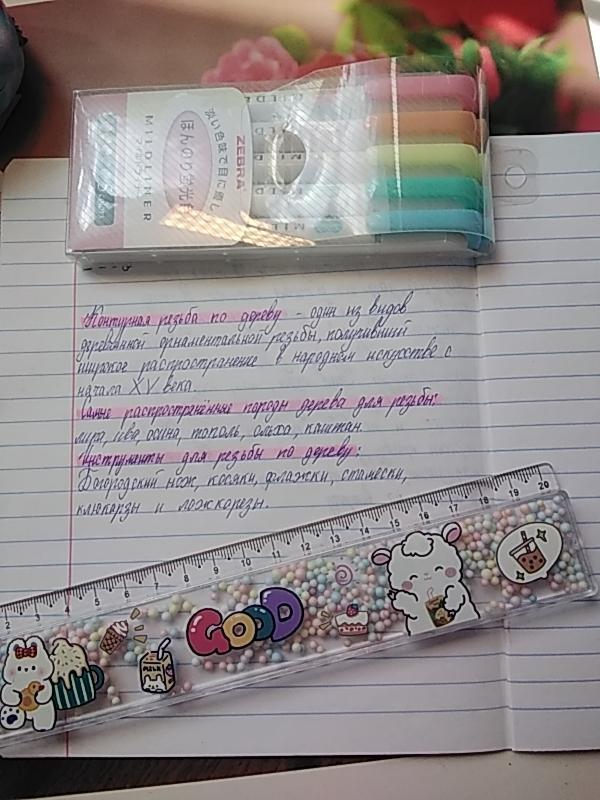 ZEBRA
淡い色味で目に優し
ほんのり蛍光
MILDLINER
Контурная резьба по дереву - один из видов
деревянной орнаментальной резьбы, получивший
широкое распространение в народном искусстве с
начала XV века.
Самые распространённые породы дерева для резьбы:
липа, ива, осина, тополь, ольха, каштан.
Инструменты для резьбы по дереву:
Богородский нож, косяки, флажки, стамески,
клюкарзы и ложкорезы.
2 3 4 5 6 7 8 9 10 11 12 13 14 15 16 17 18 19 20
GOOD
MILK